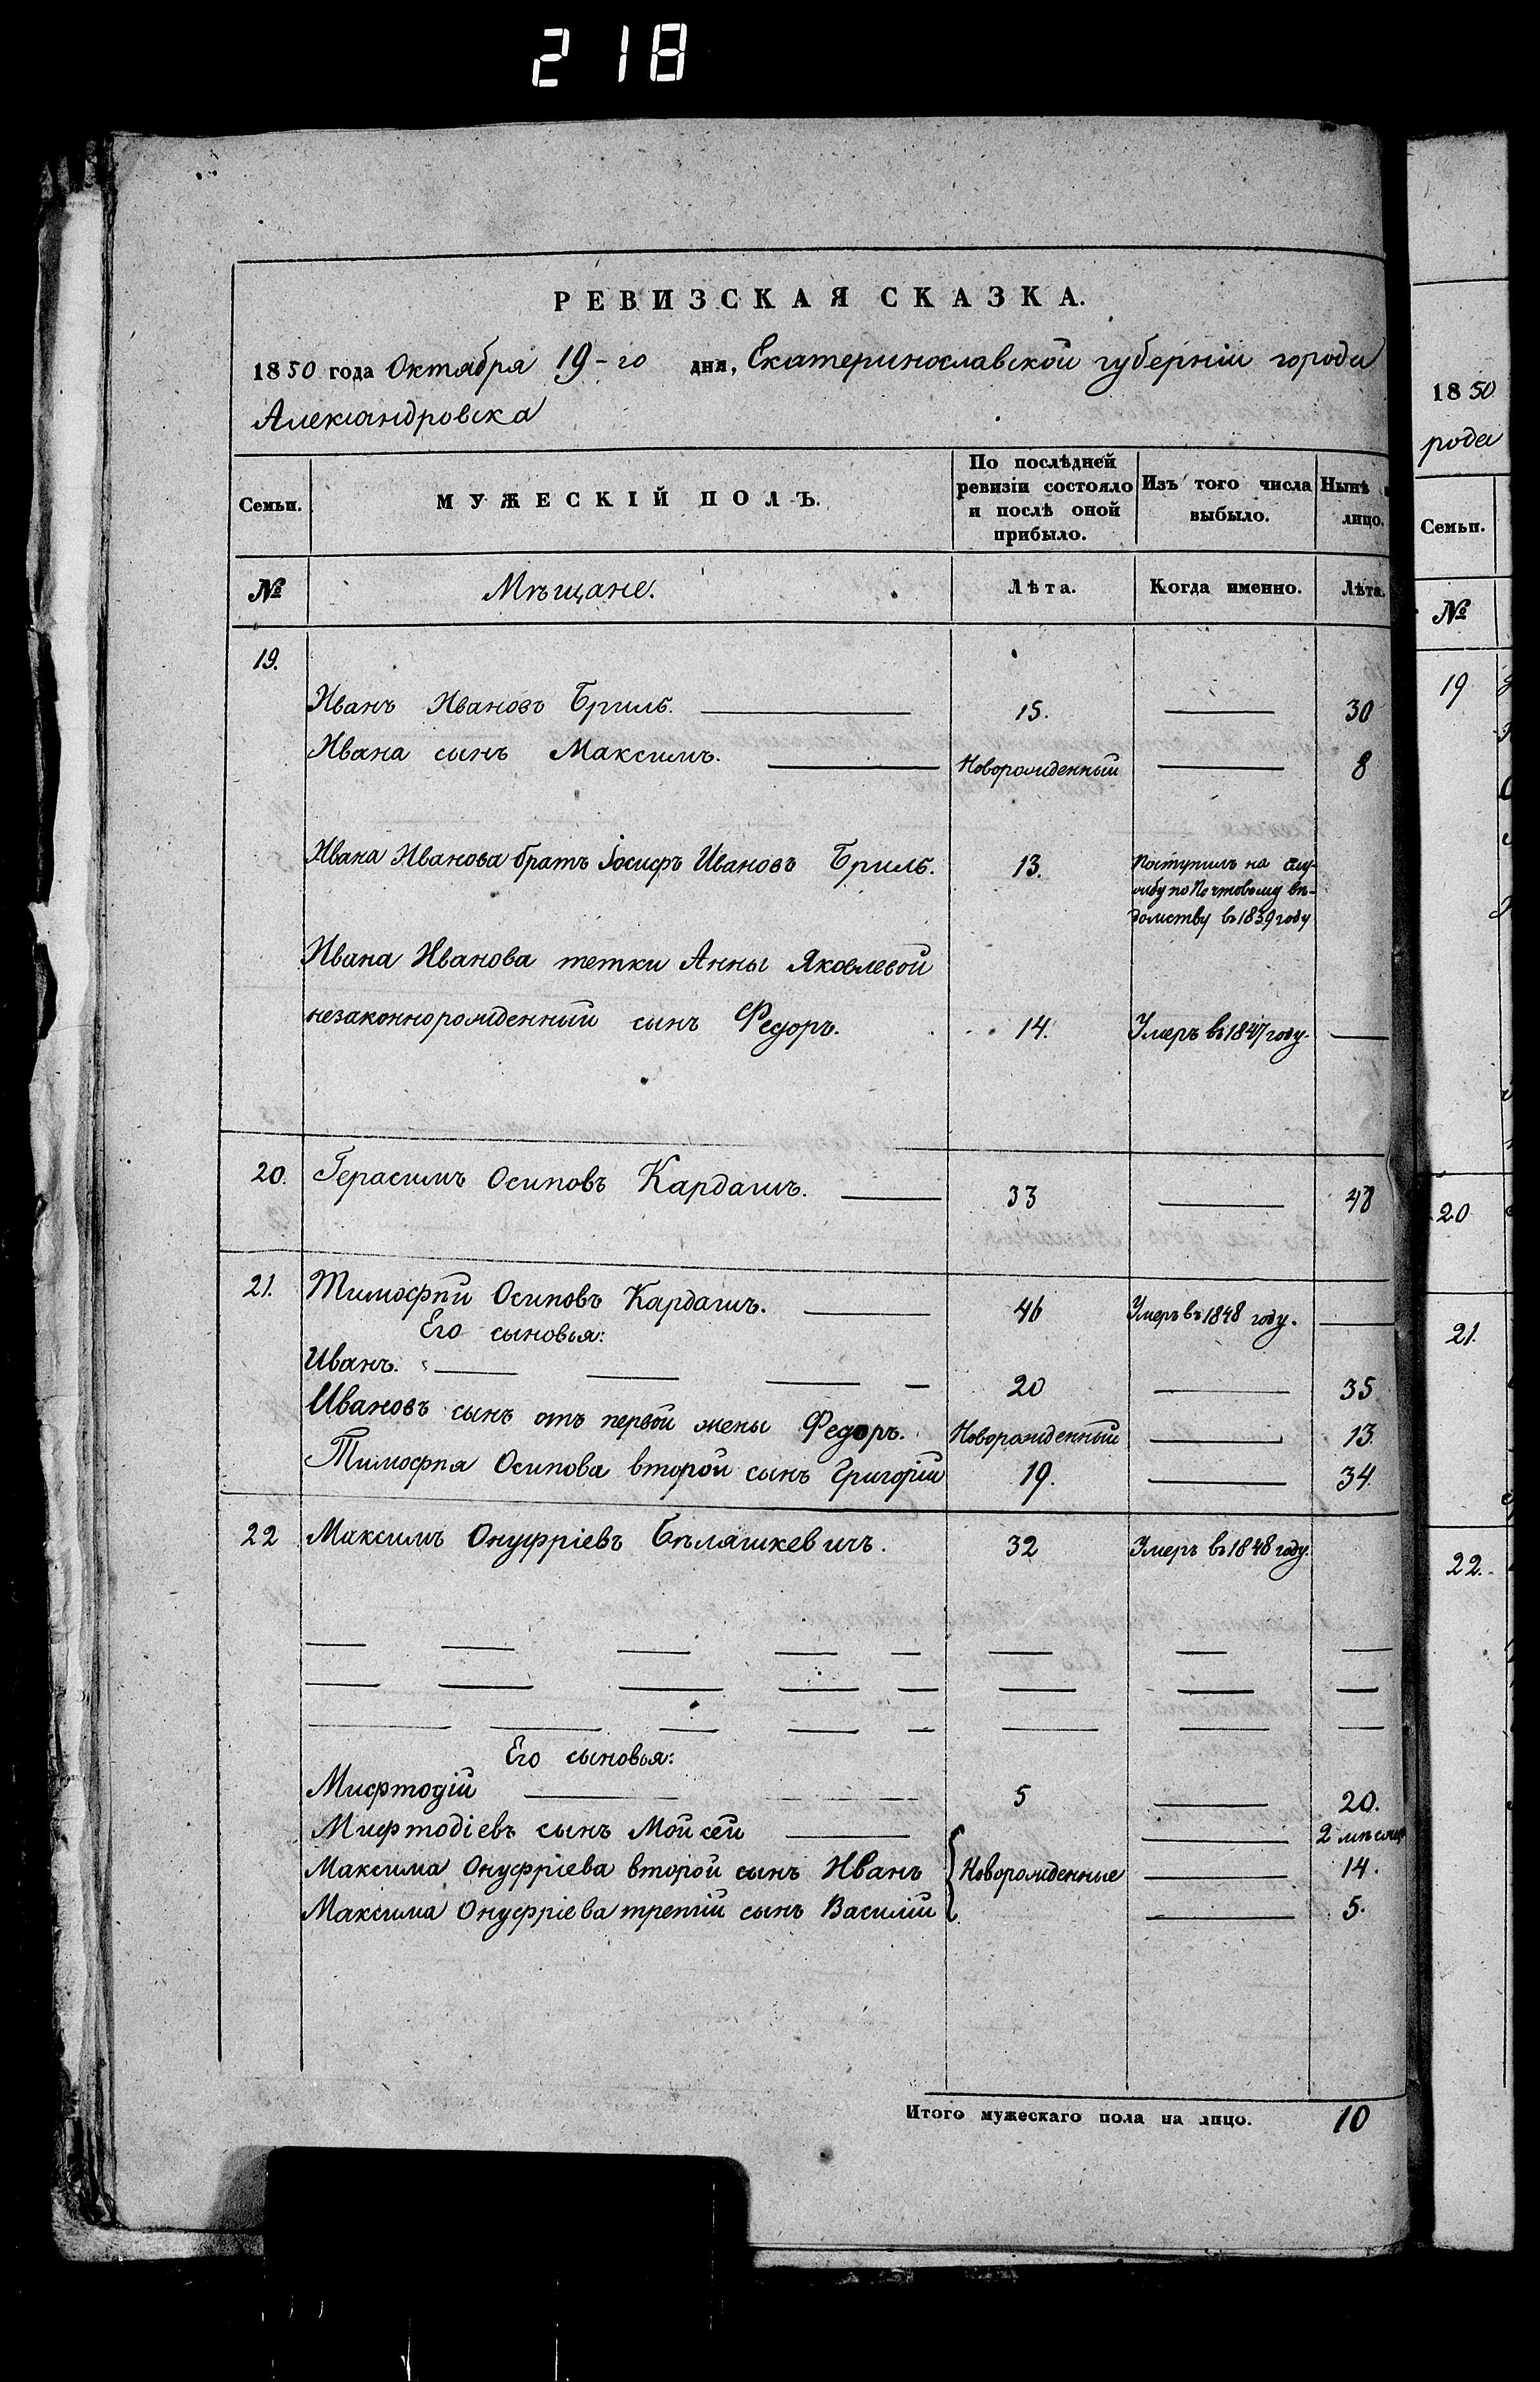 218
РЕВИЗСКАЯ СКАЗКА.
1850 года Октября 19-го дня, Екатеринославской губерніи города
Александровска
Семьи. МУЖЕСКІЙ ПОЛЪ. По послѣдней ревизіи состояло и послѣ оной прибыло. Изъ того числа выбыло. Нынѣ лицо.
№ Мѣщане. Лѣта. Когда именно. Лѣта.
19.
Иванъ Ивановъ Бриль. 15. 30
Ивана сынъ Максимъ. Новорожденный 8
Ивана Иванова братъ Іосифъ Ивановъ Бриль. 13. Поступилъ на слу-
жбу по Почтовому вѣ-
домству въ 1839 году
Ивана Иванова тетки Анны Яковлевой
незаконнорожденный сынъ Федоръ. 14. Умеръ въ 1847 году.
20. Герасимъ Осиповъ Кардашъ. 33 48
21. Тимофѣй Осиповъ Кардашъ. 46 Умеръ въ 1848 году.
Его сыновья:
Иванъ. 20 35
Ивановъ сынъ отъ первой жены Федоръ. Новорожденный 13.
Тимофѣя Осипова второй сынъ Григорій 19. 34.
22 Максимъ Онуфріевъ Бѣляшкевичъ. 32 Умеръ въ 1848 году.
Его сыновья:
Мифтодій 5 20.
Мифтодіевъ сынъ Мойсей 2 мѣсяца
Максима Онуфріева второй сынъ Иванъ Новорожденные 14.
Максима Онуфріева третій сынъ Василій 5.
Итого мужескаго пола на лицо. 10
1850
рода
Семьи.
№
19
20
21.
22.